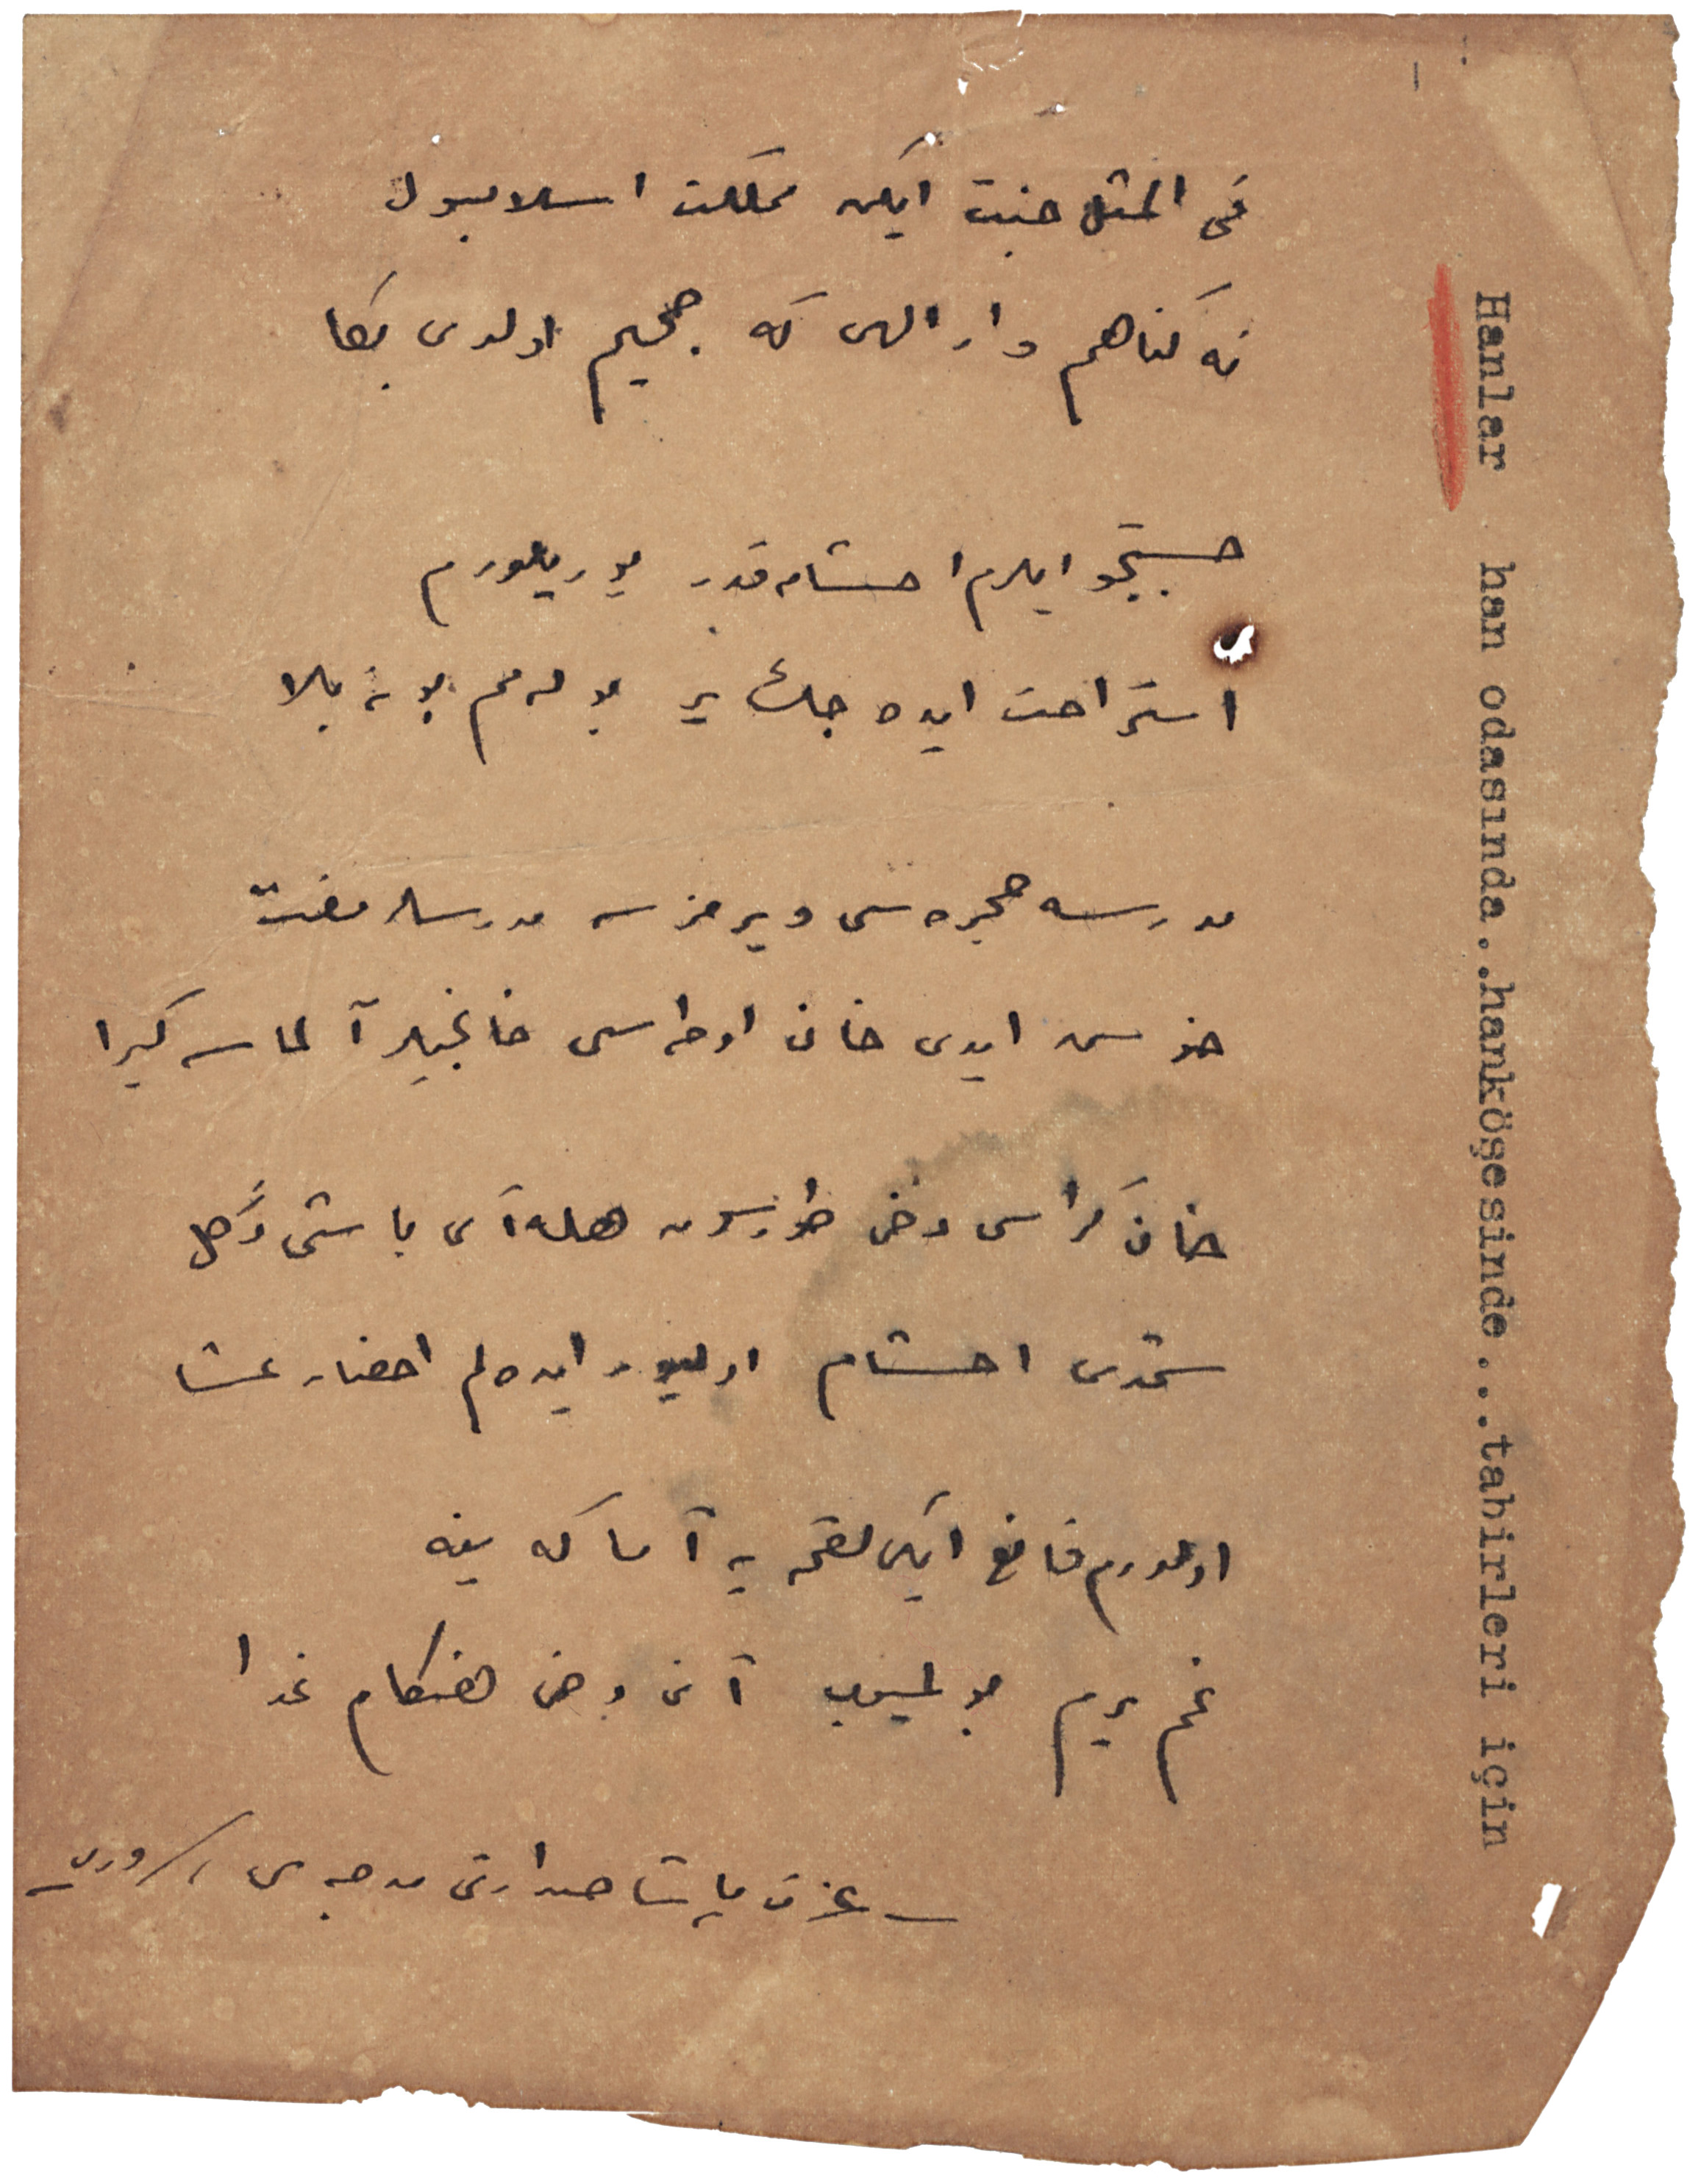 فی المثل جنت ایکن مملکت اسلامبول
نه کناهم وار الهی که جحیم اولدی بکا
جستجو ایلرم اخشامه قدر یوریلورم
استراحت ایده جك یر بوله مم بو نه بلا
مدرسه حجره سی ویرمز سه مدرسلر مفت
خوش ایدی خان اوطه سی خانجیلر آلماسه کیرا
خان کراسی دخی طورسون هله آی باشنه دکل
شمدی اخشام اولیور ایده لم احضار عشا
اولورم قانع ایکی لقمه یه اما که ینه
غم یرم بولمیوب آنی دخی هنکام غدا
عزت پاشا صدارتی مدحیه سی / سروری
Hanlar han odasında..hanköşesinde...tabirleri için